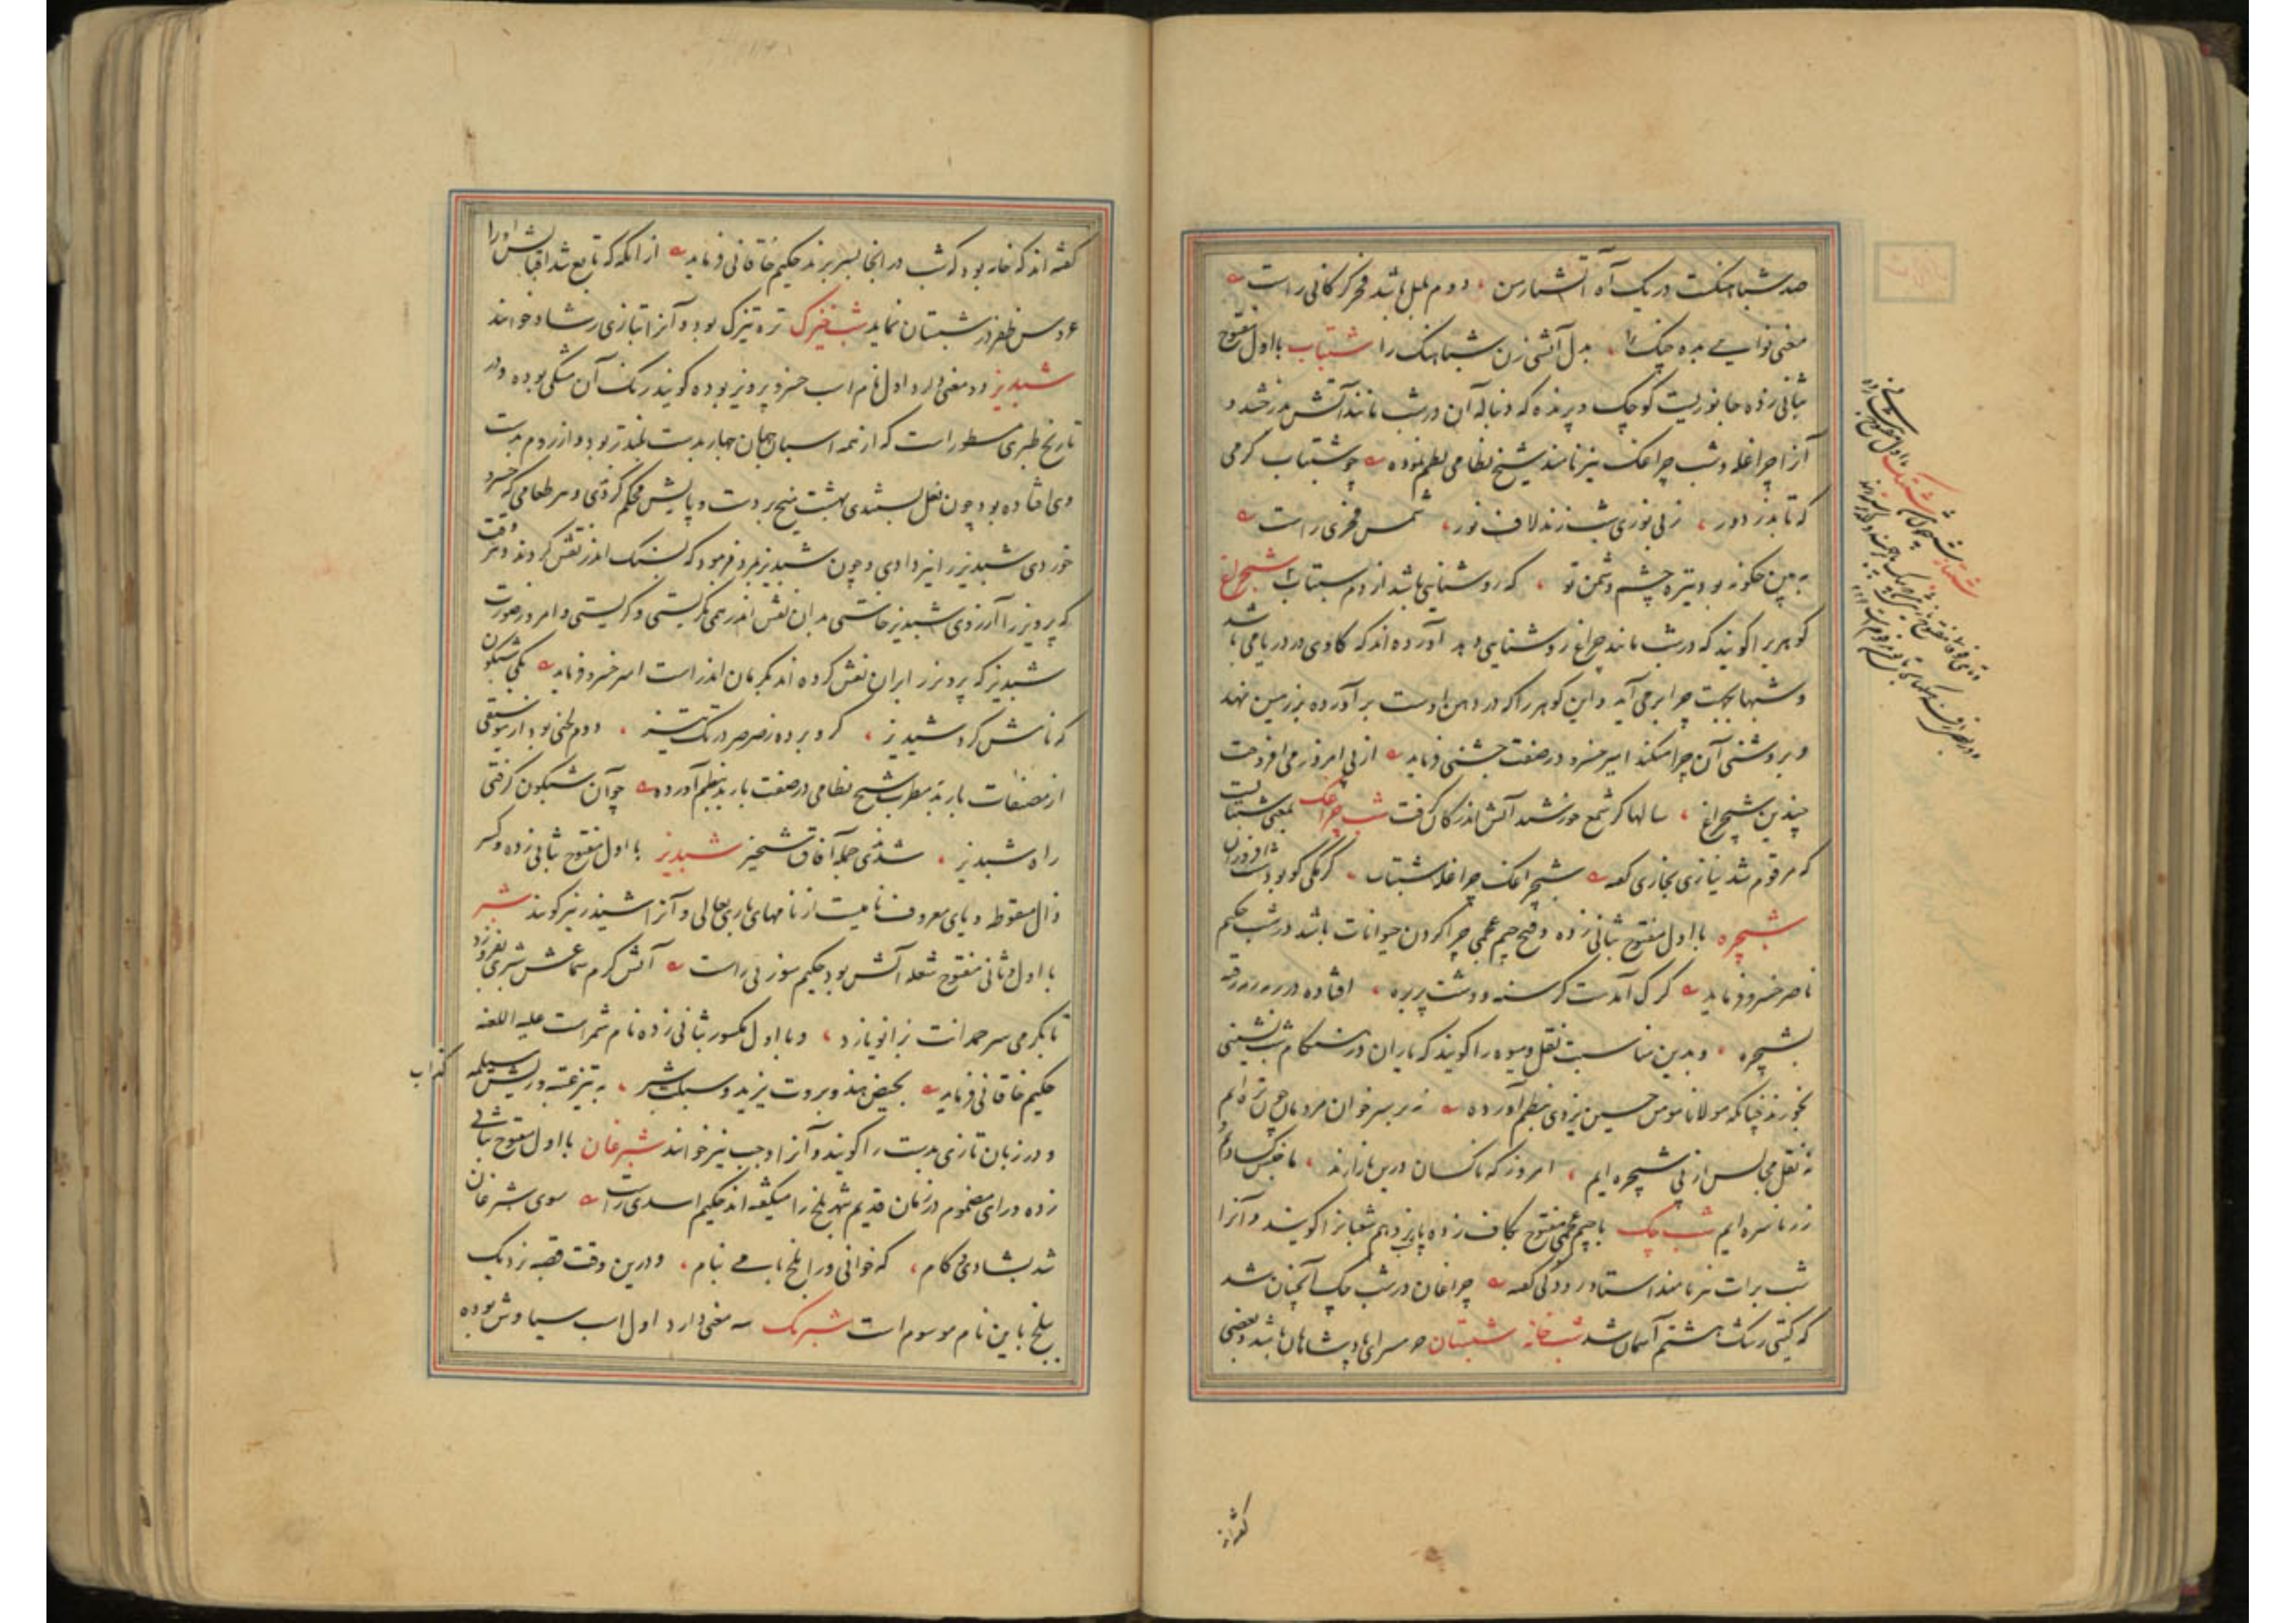 صد شباهنگست در یک آه آتشبار من دوم بلبل باشد فخر گرگانی راست
مغنی نوایی بده چنگ را بدل آتشی زن شباهنگ را شبتاب با اول مفتوح
بثانی زده جانوریست کوچک و پرنده که دنباله آن در شب مانند آتش بدرخشد و
آنرا چراغله و شب چراغک نیز نامند شیخ نظامی نظم نموده چو شبتاب کرمی
که تابد ز دور ز بی نوری شب زند لاف نور شمس فخری راست
به بین چگونه بود تیره چشم دشمن تو که روشنایی باشد از دم شبتاب شبچراغ
گوهریرا گویند که در شب مانند چراغ روشنایی دهد آورده اند که گاوی در دریا می باشد
و شبها بجهت چرا برمی آید و این گوهر را که در دهن اوست برآورده بر زمین نهد
و بروشنی آن چرا میکند امیر خسرو در صفت جشنی فرماید از پی امروز می افروخت
چندین شبچراغ سالها کز شمع خورشید آتش اندر کان گرفت شب چراغک بمعنی شبتابست
که مرقوم شد نیازی بخاری گفته شبچراغک چراغله شبتاب کرمکی کو بود شب افروزان
شبچره با اول مفتوح بثانی زده و فتح جیم عجمی چرا کردن حیوانات باشد در شب حکیم
ناصر خسرو فرماید گرگ آمدست گرسنه و دشت پر بره افتاده در رمه رمه رفته
بشبچره و بدین مناسبت نقل و میوه را گویند که یاران در هنگام شب نشینی
بخورند چنانکه مولانا مومن حسین یزدی بنظم آورده نه بر سر خوان مردمان چون تره ایم
نه نقل مجالس از پی شبچره ایم امروز که ناکسان درین بازارند ما جنس کسادیم و
زر ناسره ایم شب چک با جیم عجمی مفتوح بکاف زده پانزدهم شعبانرا گویند و آنرا
شب برات نیز نامند استاد رودکی گفته چراغان در شب چک آنچنان شد
که گیتی رشک هشتم آسمان شد شب خانه شبستان حرم سرای پادشاهان باشد و بعضی
گفته اند
گفته اند که خانه بود که شب در آنجا بسر برند حکیم خاقانی فرماید از آنگه که تابع شد اقبالش او را
عروس ظفر در شبستان نماید شب خیزک تره تیزک بود و آنرا بتازی رشاد خوانند
شبدیز دو معنی دارد اول نام اسب خسرو پرویز بوده گویند رنگ آن مشکی بوده و در
تاریخ طبری مسطور است که از همه اسبان جهان چهار بدست بلندتر بود و از روم بدست
وی افتاده بود چون نعل بستندی بهشت میخ بر دست و پایش محکم کردندی و هر طعامی که خسرو
خوردی شبدیز را نیز دادی و چون شبدیز بمرد فرمود که بسنگ اندر نقش کردند و هر وقت
که پرویز را آرزوی شبدیز خاستی بدان نقش اندر همی نگریستی و گریستی و امروز صورت
شبدیز که پرویز بر ایران نقش کرده اند بکرمان اندر است امیر خسرو فرماید یکی شبگون
که نامش کرد شبدیز گرو برده ز صرصر در تک تیز دوم لحنی بود از موسیقی
از مصنفات باربد مطرب شیخ نظامی در صفت باربد بنظم آورده چو آن شبگون گرفتی
راه شبدیز شدندی جمله آفاق شبخیز شبدیز با اول مفتوح بثانی زده و کسر
ذال منقوطه و یای معروف نامیست از نامهای باری تعالی و آنرا شیذر نیز گویند شبر
با اول و ثانی مفتوح شعله آتش بود حکیم سوزنی راست
تا بکرمی سر حمدانت بزانو یازد و با اول مکسور بثانی زده نام شمر است علیه اللعنه
حکیم خاقانی فرماید بحیض هند و بروت یزید و سبلت شبر به تیز عتبه و ریش مسیلمه
کذاب
و در زبان تازی بدست را گویند و آنرا وجب نیز خوانند شبرغان با اول مفتوح بثانی
زده و رای مضموم در زمان قدیم شهر بلخ را میگفته اند حکیم اسدی راست سوی شبرغان
شد بشادی و کام که خوانی ورا بلخ بامی بنام و درین وقت قصبه نزدیک
بلخ باین نام موسوم است شبرنگ سه معنی دارد اول اسب سیاوش بوده